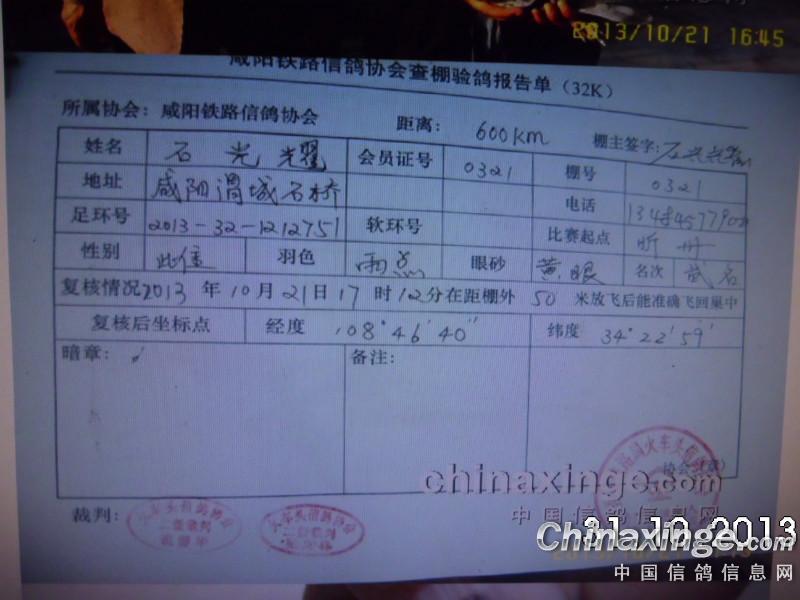 2013/10/21 16:45
咸阳铁路信鸽协会查棚验鸽报告单（32K）
所属协会：咸阳铁路信鸽协会 距离：600km 棚主签字：石光耀
姓名 石光耀 会员证号 0321 棚号 0321
地址 咸阳渭城石桥 电话
足环号 2013-32-1212751 软环号 比赛起点 忻州
性别 羽色 雨点 眼砂 黄眼 名次
复核情况2013年10月21日17时12分在距棚外50米放飞后能准确飞回巢中
复核后坐标点 经度 108°46′40″ 纬度 34°22′59′
暗章： 备注：
协会(章)
裁判：
chinaxinge.com
中国信鸽信息网
31.10.2013
Chinaxinge.com
中国信鸽信息网